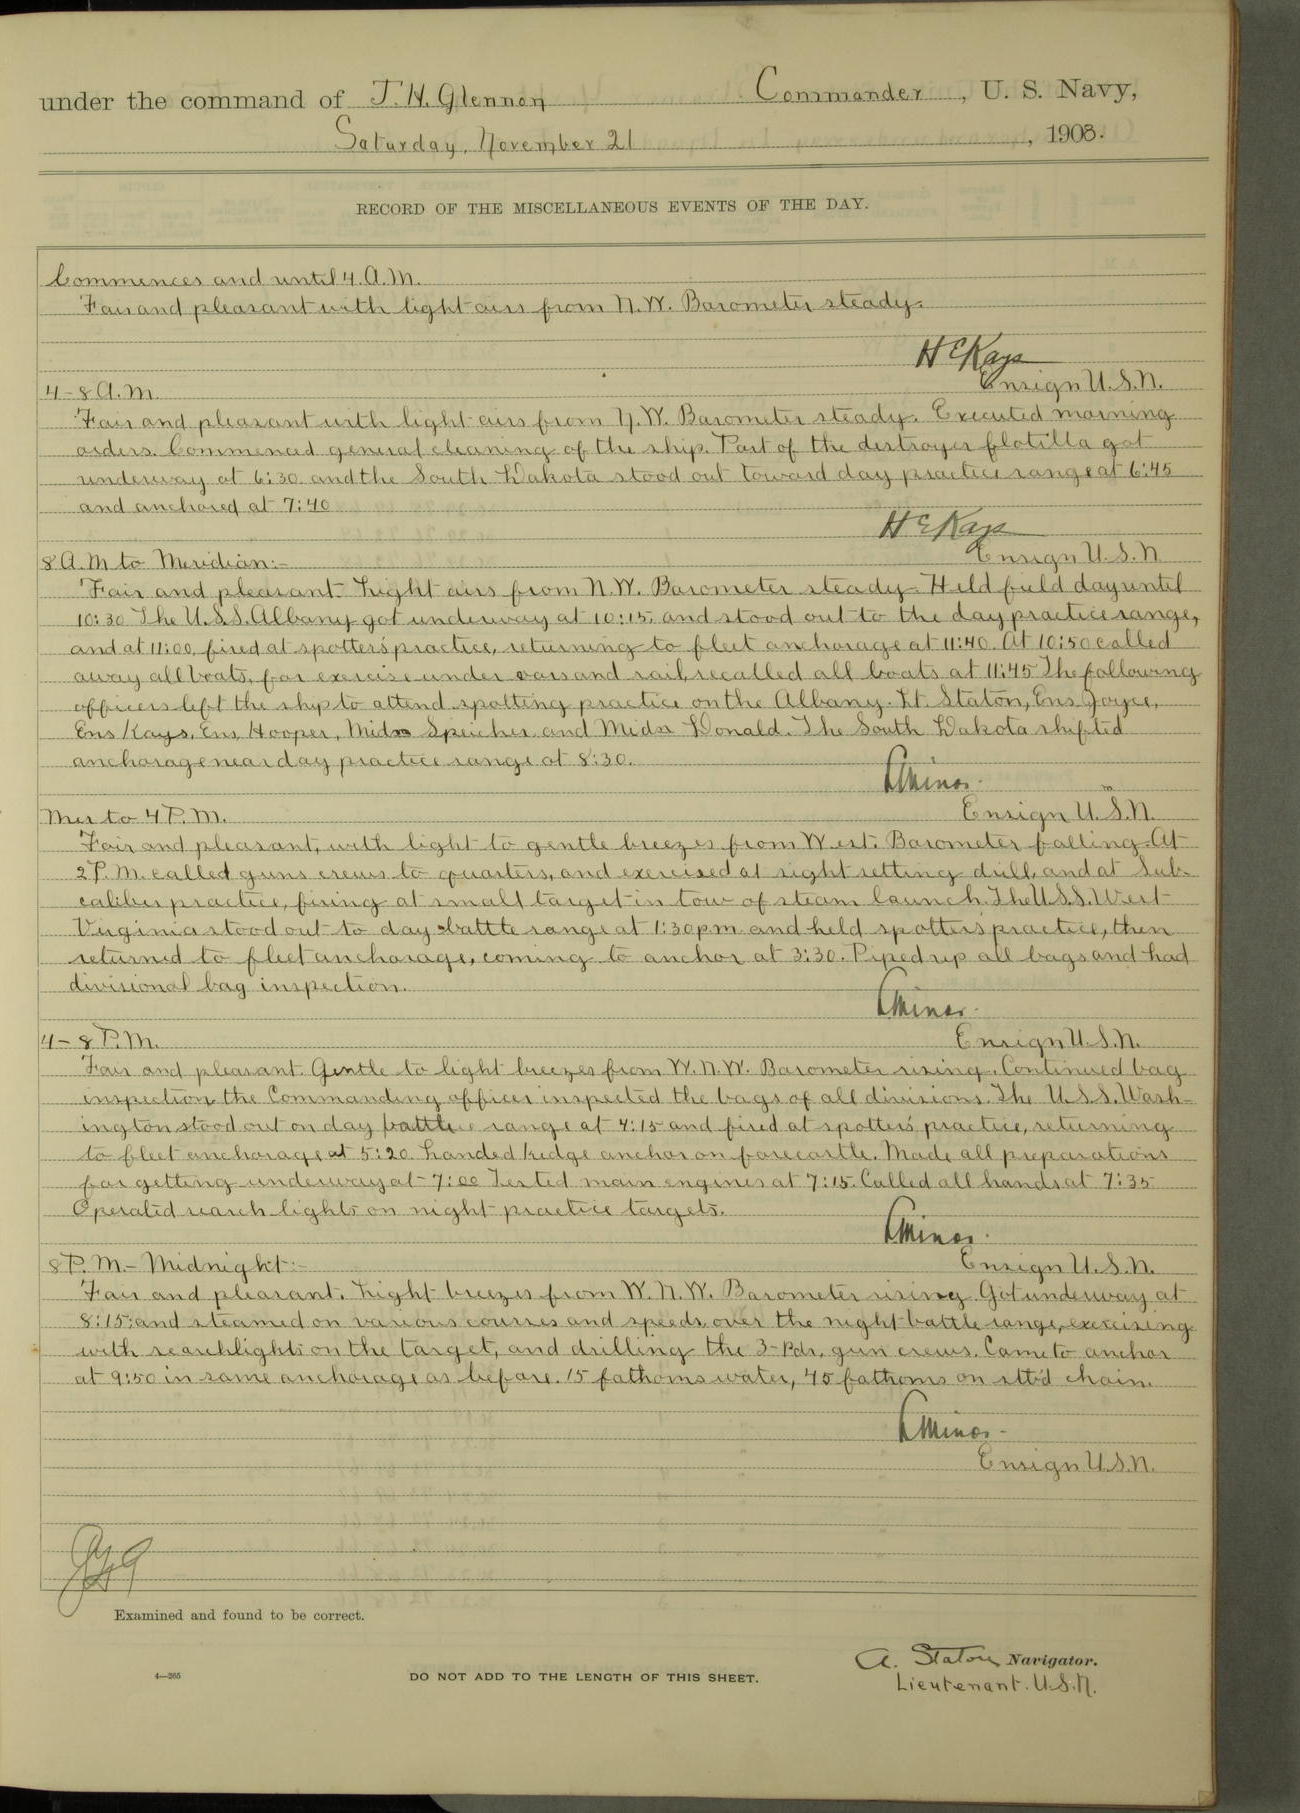 under the command of J. H. Glennon Commander, U. S. Navy,
Saturday, November 21, 1908.
RECORD OF THE MISCELLANEOUS EVENTS OF THE DAY.
Commences and until 4. A.M.
Fair and pleasant with light airs from N.W. Barometer steady.
H E Kays
Ensign U.S.N.
4-8 A.M.
Fair and pleasant with light airs from N.W. Barometer steady. Executed morning
orders. Commenced general cleaning of the ship. Part of the destroyer flotilla got
underway at 6:30 and the South Dakota stood out toward day practice range at 6:45
and anchored at 7:40
H E Kays
Ensign U.S.N
8 A.M to Meridian:-
Fair and pleasant. Light airs from N.W. Barometer steady. Held field day until
10:30 The U.S.S. Albany got underway at 10:15, and stood out to the day practice range,
and at 11:00, fired at spotter's practice, returning to fleet anchorage at 11:40. At 10:50 called
away all boats, for exercise under oars and sail, recalled all boats at 11:45 The following
officers left the ship to attend spotting practice on the Albany. Lt. Staton, Ens Joyce,
Ens Kays, Ens. Hooper, Midn Speicher and Midn Donald. The South Dakota shifted
anchorage near day practice range at 8:30.
L Minor.
Ensign U.S.N.
Mer to 4 P.M.
Fair and pleasant, with light to gentle breezes from West. Barometer falling. At
2 P.M. called guns crews to quarters, and exercised at sight setting drill, and at Sub-
caliber practice, firing at small target in tow of steam launch. The U.S.S. West
Virginia stood out to day battle range at 1:30 pm and held spotter's practice, then
returned to fleet anchorage, coming to anchor at 3:30. Piped up all bags and had
divisional bag inspection.
L Minor.
4-8 P.M.
Ensign U.S.N.
Fair and pleasant. Gentle to light breezes from W.N.W. Barometer rising. Continued bag
inspection, the Commanding officer inspected the bags of all divisions. The U.S.S. Wash-
ington stood out on day battle range at 4:15 and fired at spotter's practice, returning
to fleet anchorage at 5:20. Landed kedge anchor on forecastle. Made all preparations
for getting underway at 7:00 Tested main engines at 7:15. Called all hands at 7:35
Operated search lights on night practice targets.
L Minor.
Ensign U.S.N.
8 P.M.- Midnight:-
Fair and pleasant. Light breezes from W.N.W. Barometer rising. Got underway at
8:15, and steamed on various courses and speeds, over the night battle range, exercising
with searchlights on the target, and drilling the 3-Pdr. gun crews. Came to anchor
at 9:50 in same anchorage as before. 15 fathoms water, 45 fathoms on stb'd chain.
L Minor.
Ensign U.S.N.
Examined and found to be correct.
A. Staton Navigator.
4—265
DO NOT ADD TO THE LENGTH OF THIS SHEET.
Lieutenant. U.S.N.